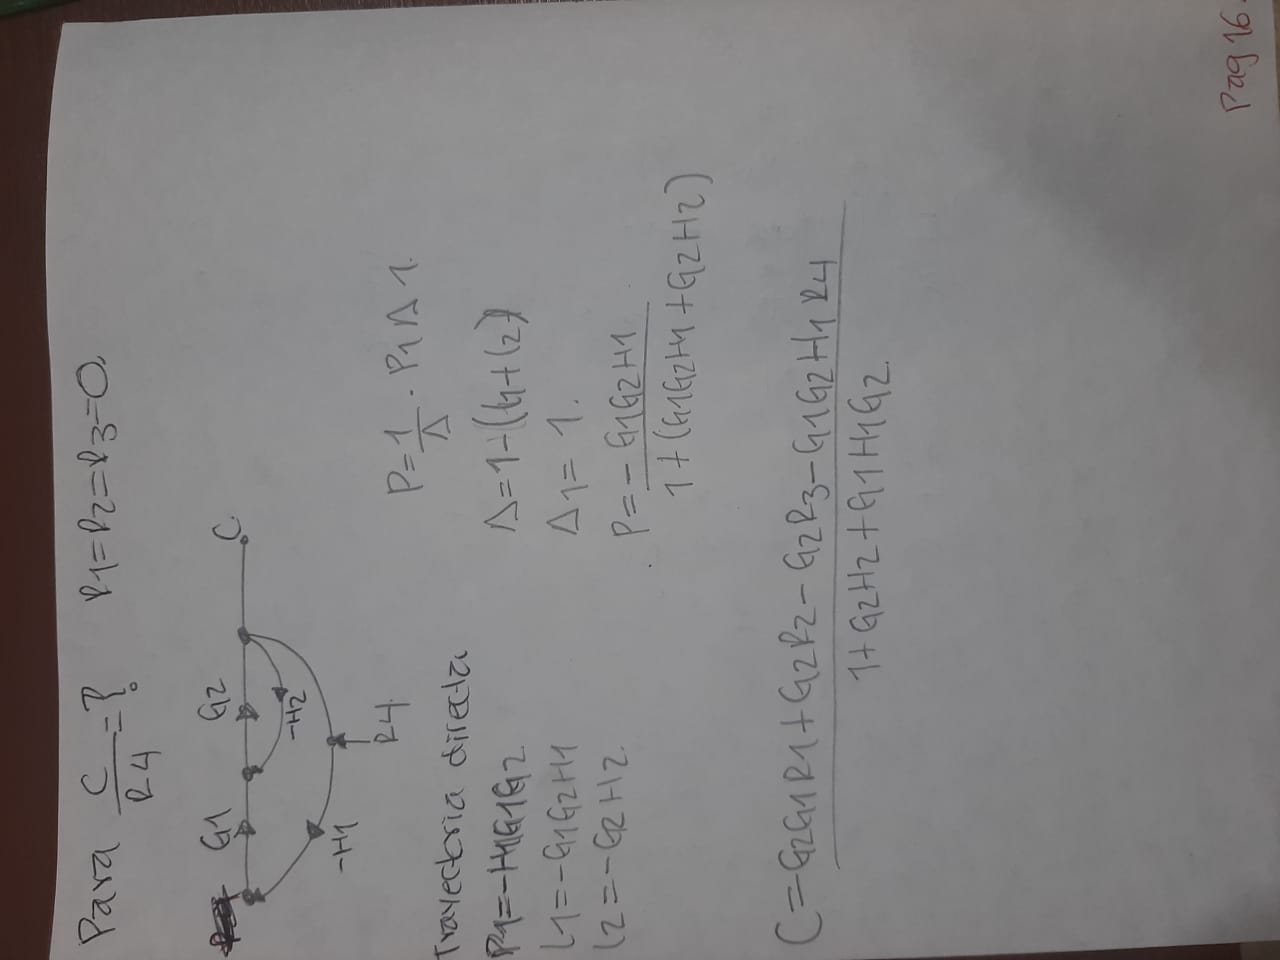 Para C/R4 =? R1=R2=R3=0.
G1 G2 C
-H2
-H1
R4.
P=1/Δ · P1 Δ 1.
Trayectoria directa
P1=-H1G1G2.
L1=-G1G2H1
L2=-G2H2.
Δ=1-(L1+L2)
Δ1= 1.
P=- G1G2H1 / 1+(G1G2H1+G2H2)
C=G2G1R1+G2R2-G2R3-G1G2H1R4 / 1+G2H2+G1H1G2.
Pag 16.